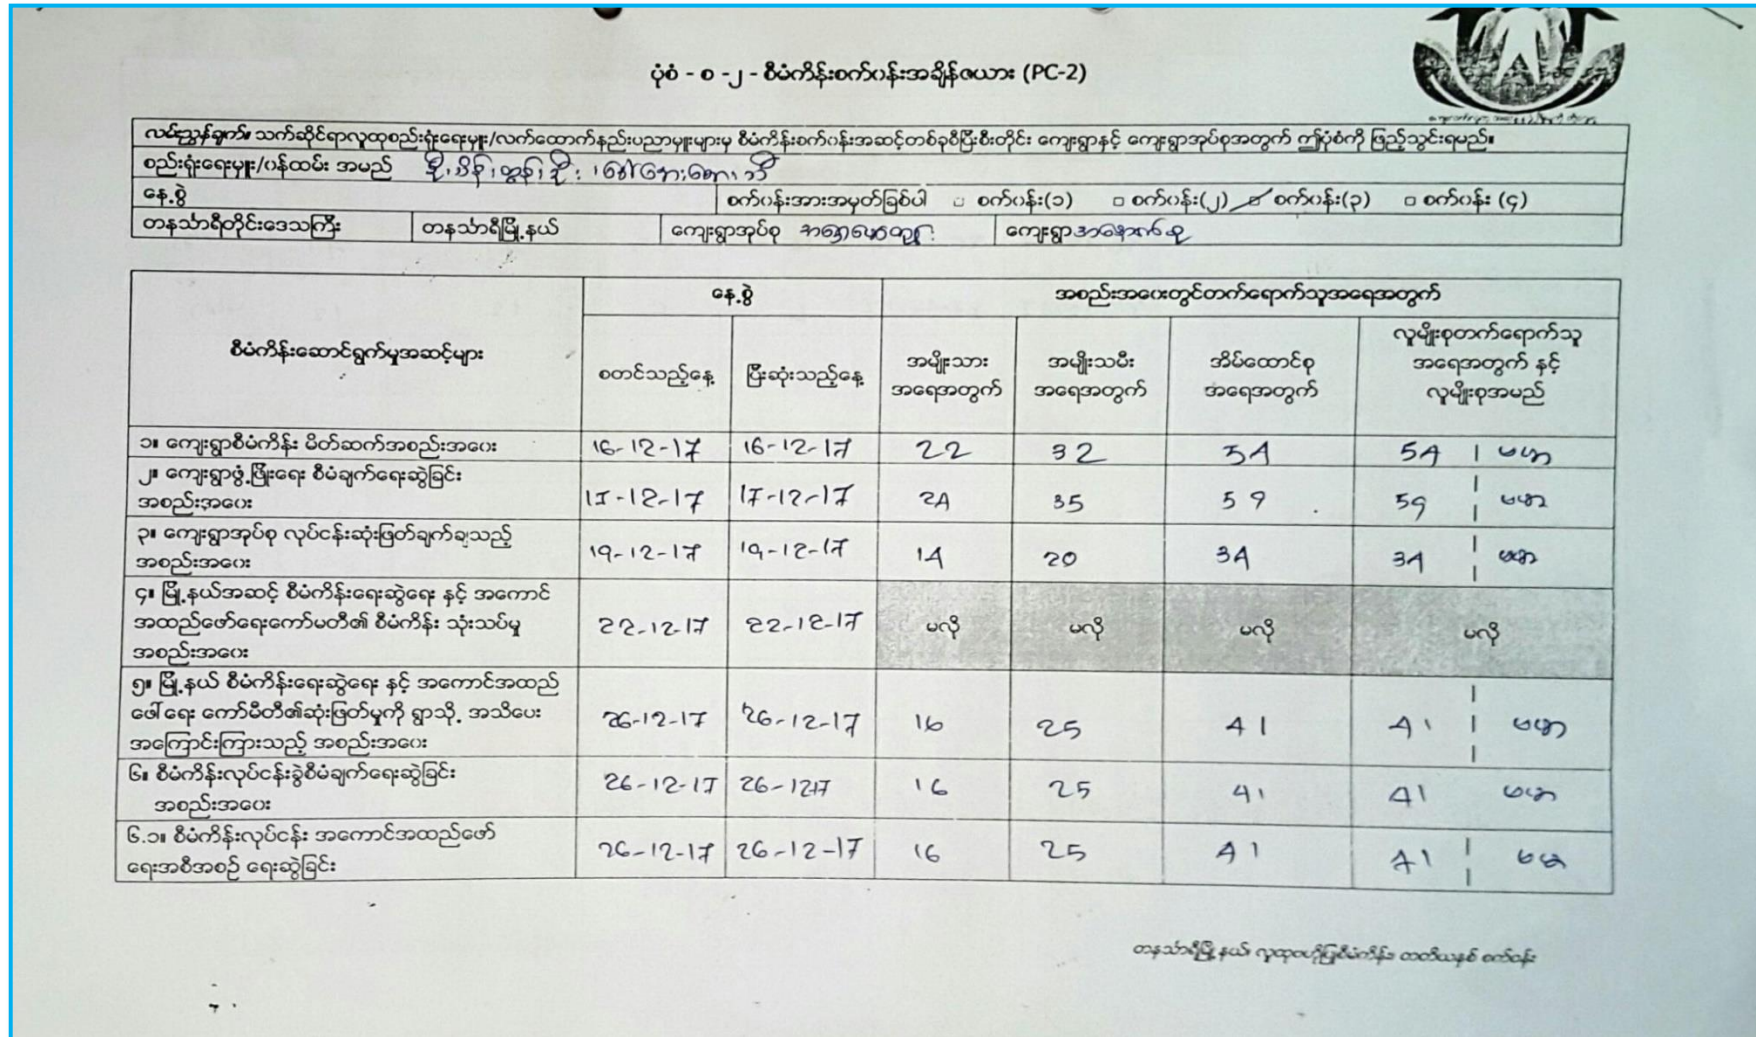 ပုံစံ - စ -၂ - စီမံကိန်းစက်ဝန်းအချိန်ဇယား (PC-2)
လမ်းညွှန်ချက်။ သက်ဆိုင်ရာလူထုစည်းရုံးရေးမှူး/လက်ထောက်နည်းပညာမှူးများမှ စီမံကိန်းစက်ဝန်းအဆင့်တစ်ခုစီပြီးစီးတိုင်း ကျေးရွာနှင့် ကျေးရွာအုပ်စုအတွက် ဤပုံစံကို ဖြည့်သွင်းရမည်။
စည်းရုံးရေးမှူး/ဝန်ထမ်း အမည်
နေ့စွဲ စက်ဝန်းအားအမှတ်ခြစ်ပါ □ စက်ဝန်း(၁) □ စက်ဝန်း(၂) စက်ဝန်း(၃) □ စက်ဝန်း (၄)
တနင်္သာရီတိုင်းဒေသကြီး တနင်္သာရီမြို့နယ် ကျေးရွာအုပ်စု ကျေးရွာ အနောက်စု
နေ့စွဲ အစည်းအဝေးတွင်တက်ရောက်သူအရေအတွက်
စီမံကိန်းဆောင်ရွက်မှုအဆင့်များ
စတင်သည့်နေ့ ပြီးဆုံးသည့်နေ့
အမျိုးသား အရေအတွက်
အမျိုးသမီး အရေအတွက်
အိမ်ထောင်စု အရေအတွက်
လူမျိုးစုတက်ရောက်သူ
အရေအတွက် နှင့်
လူမျိုးစုအမည်
၁။ ကျေးရွာစီမံကိန်း မိတ်ဆက်အစည်းအဝေး 16-12-17 16-12-17 22 32 54 54 ဗမာ
၂။ ကျေးရွာဖွံ့ဖြိုးရေး စီမံချက်ရေးဆွဲခြင်း
အစည်းအဝေး 17-12-17 17-12-17 24 35 59 59 ဗမာ
၃။ ကျေးရွာအုပ်စု လုပ်ငန်းဆုံးဖြတ်ချက်ချသည့်
အစည်းအဝေး 19-12-17 19-12-17 14 20 34 34 ဗမာ
၄။ မြို့နယ်အဆင့် စီမံကိန်းရေးဆွဲရေး နှင့် အကောင်
အထည်ဖော်ရေးကော်မတီ၏ စီမံကိန်း သုံးသပ်မှု
အစည်းအဝေး 22-12-17 22-12-17 မလို မလို မလို မလို
၅။ မြို့နယ် စီမံကိန်းရေးဆွဲရေး နှင့် အကောင်အထည်
ဖေါ်ရေး ကော်မီတီ၏ဆုံးဖြတ်မှုကို ရွာသို့ အသိပေး
အကြောင်းကြားသည့် အစည်းအဝေး 26-12-17 26-12-17 16 25 41 41 ဗမာ
၆။ စီမံကိန်းလုပ်ငန်းခွဲစီမံချက်ရေးဆွဲခြင်း
အစည်းအဝေး 26-12-17 26-1217 16 25 41 41 ဗမာ
၆.၁။ စီမံကိန်းလုပ်ငန်း အကောင်အထည်ဖော်
ရေးအစီအစဉ် ရေးဆွဲခြင်း 26-12-17 26-12-17 16 25 41 41 ဗမာ
တနင်္သာရီမြို့နယ်၊ လူထုဗဟိုပြုစီမံကိန်း၊ တတိယနှစ် စက်ဝန်း